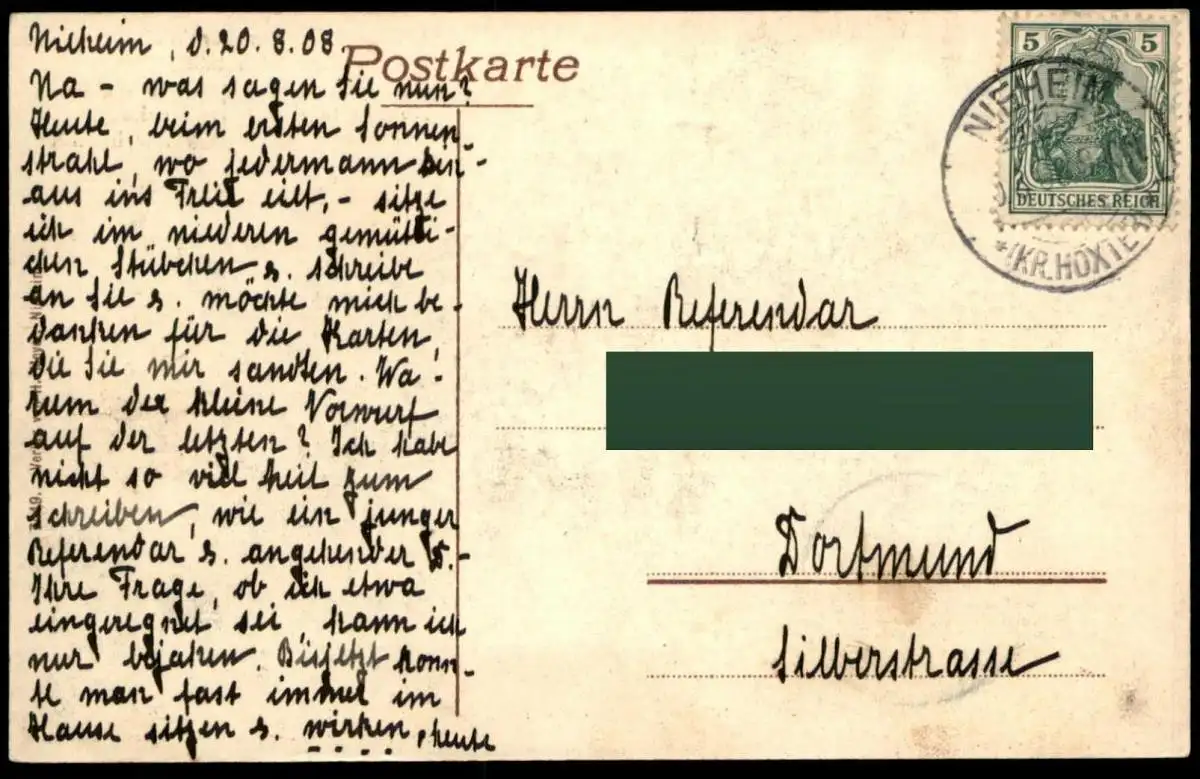 Nieheim, d. 20. 8. 08.
Postkarte
Na - was sagen Sie nun?
Heute, beim ersten Sonnen
strahl, wo jedermann hin-
aus ins Freie eilt, - sitze
ich im niederen gemütli-
chen Stübchen u. schreibe
an Sie u. möchte mich be-
danken für die Karten,
die Sie mir sandten. Wa-
rum der kleine Vorwurf
auf der letzten? Ich habe
nicht so viel Zeit zum
Schreiben, wie ein junger
Referendar u. angehender D.-
Ihre Frage, ob ich etwa
eingeregnet sei, kann ich
nur bejahen. Bisjetzt konn-
te man fast immer im
Hause sitzen u. wirken, heute
5 5
DEUTSCHES REICH
NIEHEIM
*(KR. HÖXTER)
Herrn Referendar
Dortmund
Silberstrasse